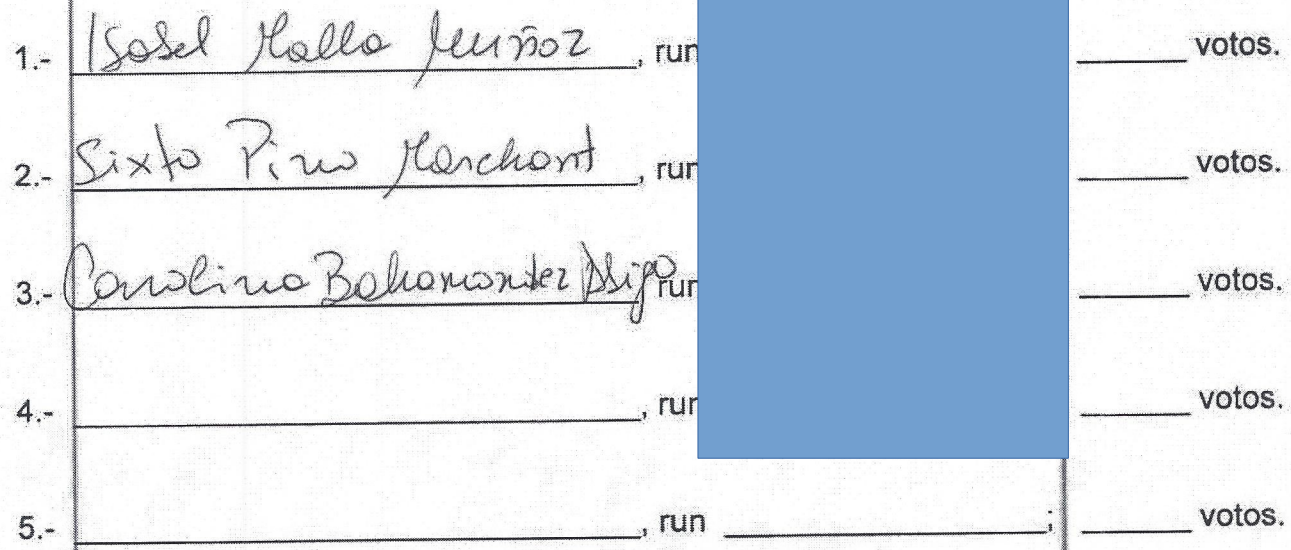 1.- Isabel Malla Muñoz, run votos.
2.- Sixto Pino Marchant, run votos.
3.- Carolina Bahamondez run votos.
4.- , run votos.
5.- , run ; votos.